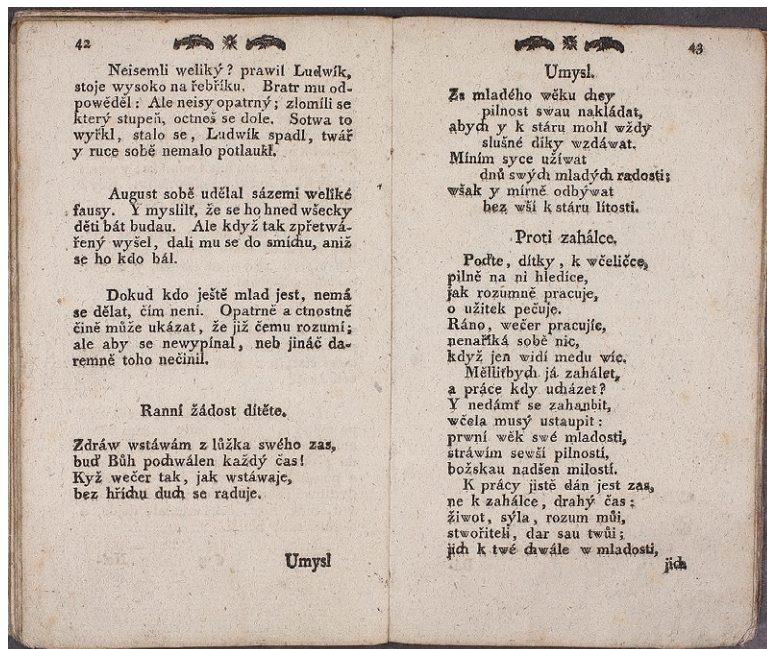 42
Neisemli weliký? prawil Ludwík,
stoje wysoko na řebříku. Bratr mu od-
powěděl: Ale neisy opatrný; zlomíli se
který stupeň, octneš se dole. Sotwa to
wyřkl, stalo se, Ludwík spadl, twář
y ruce sobě nemalo potlaukl.
August sobě udělal sázemi weliké
fausy. Y myslilť, že se ho hned wšecky
děti bát budau. Ale když tak zpřetwá-
řený wyšel, dali mu se do smíchu, aniž
se ho kdo bál.
Dokud kdo ještě mlad jest, nemá
se dělat, čím není. Opatrně a ctnostně
čině může ukázat, že již čemu rozumí;
ale aby se newypínal, neb jináč da-
remně toho nečinil.
Ranní žádost dítěte.
Zdráw wstáwám z lůžka swého zas,
buď Bůh pochwálen každý čas!
Kyž wečer tak, jak wstáwaje,
bez hříchu duch se raduje.
Umysl
43
Umysl.
Za mladého wěku chcy
pilnost swau nakládat,
abych y k stáru mohl wždy
slušné díky wzdáwat.
Míním syce užíwat
dnů swých mladých radosti;
wšak y mírně odbýwat
bez wší k stáru lítosti.
Proti zahálce.
Poďte, dítky, k wčeličce,
pilně na ni hledíce,
jak rozumně pracuje,
o užitek pečuje.
Ráno, wečer pracujíc,
nenaříká sobě nic,
když jen widí medu wíc.
Mělliťbych já zahálet,
a práce kdy ucházet?
Y nedámť se zahanbit,
wčela musý ustaupit:
prwní wěk swé mladosti,
stráwím sewší pilností,
božskau nadšen milostí.
K prácy jistě dán jest zas,
ne k zahálce, drahý čas;
žiwot, sýla, rozum můi,
stwořiteli, dar sau twůi;
jich k twé chwále w mladosti,
jich